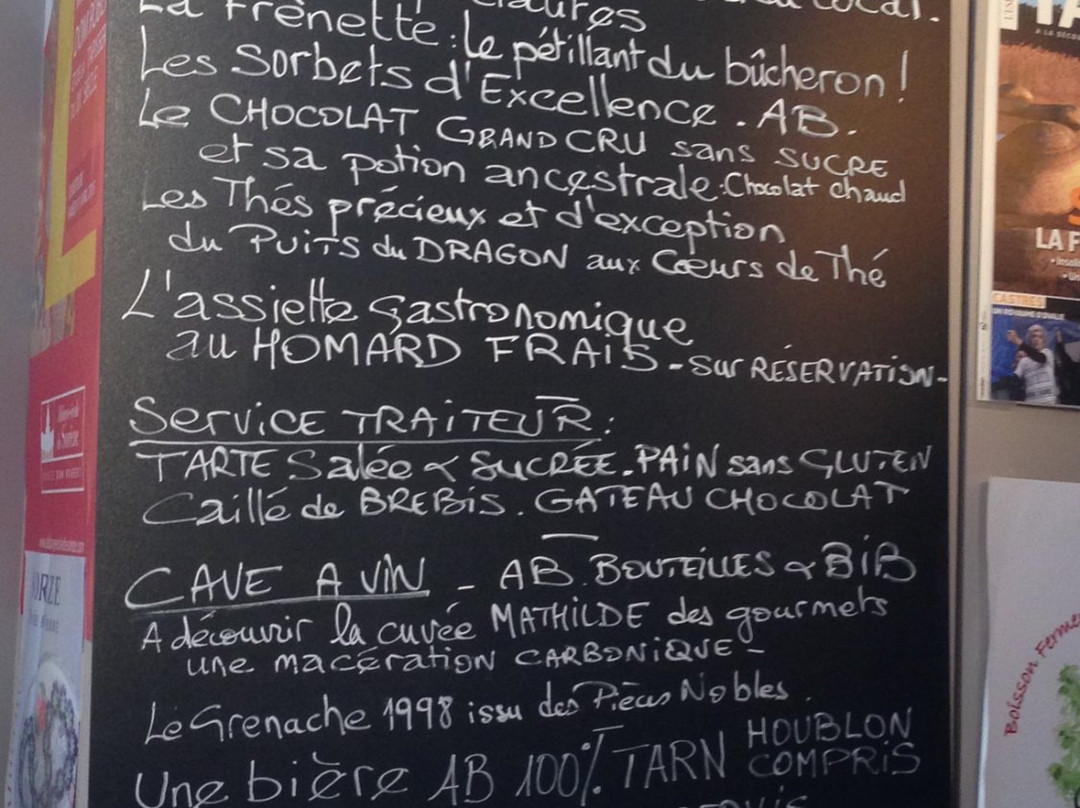 local.
La Frênette : le pétillant du bûcheron !
Les Sorbets d'Excellence . AB.
Le CHOCOLAT GRAND CRU sans SUCRE
et sa potion ancestrale : Chocolat chaud
Les Thés précieux et d'exception
du PUITS du DRAGON aux Cœurs de Thé
L'assiette gastronomique
au HOMARD FRAIS - sur RÉSERVATION -
Service TRAITEUR :
TARTE Salée & SUCRÉE . PAIN sans GLUTEN
Caillé de BREBIS . GATEAU CHOCOLAT
CAVE A VIN - AB . BOUTEILLES & BIB
A découvrir la cuvée MATHILDE des gourmets
une macération CARBONIQUE -
Le Grenache 1998 issu des Pièces Nobles .
Une bière AB 100% TARN HOUBLON
COMPRIS
LA F
CASTRES
Boisson Ferme